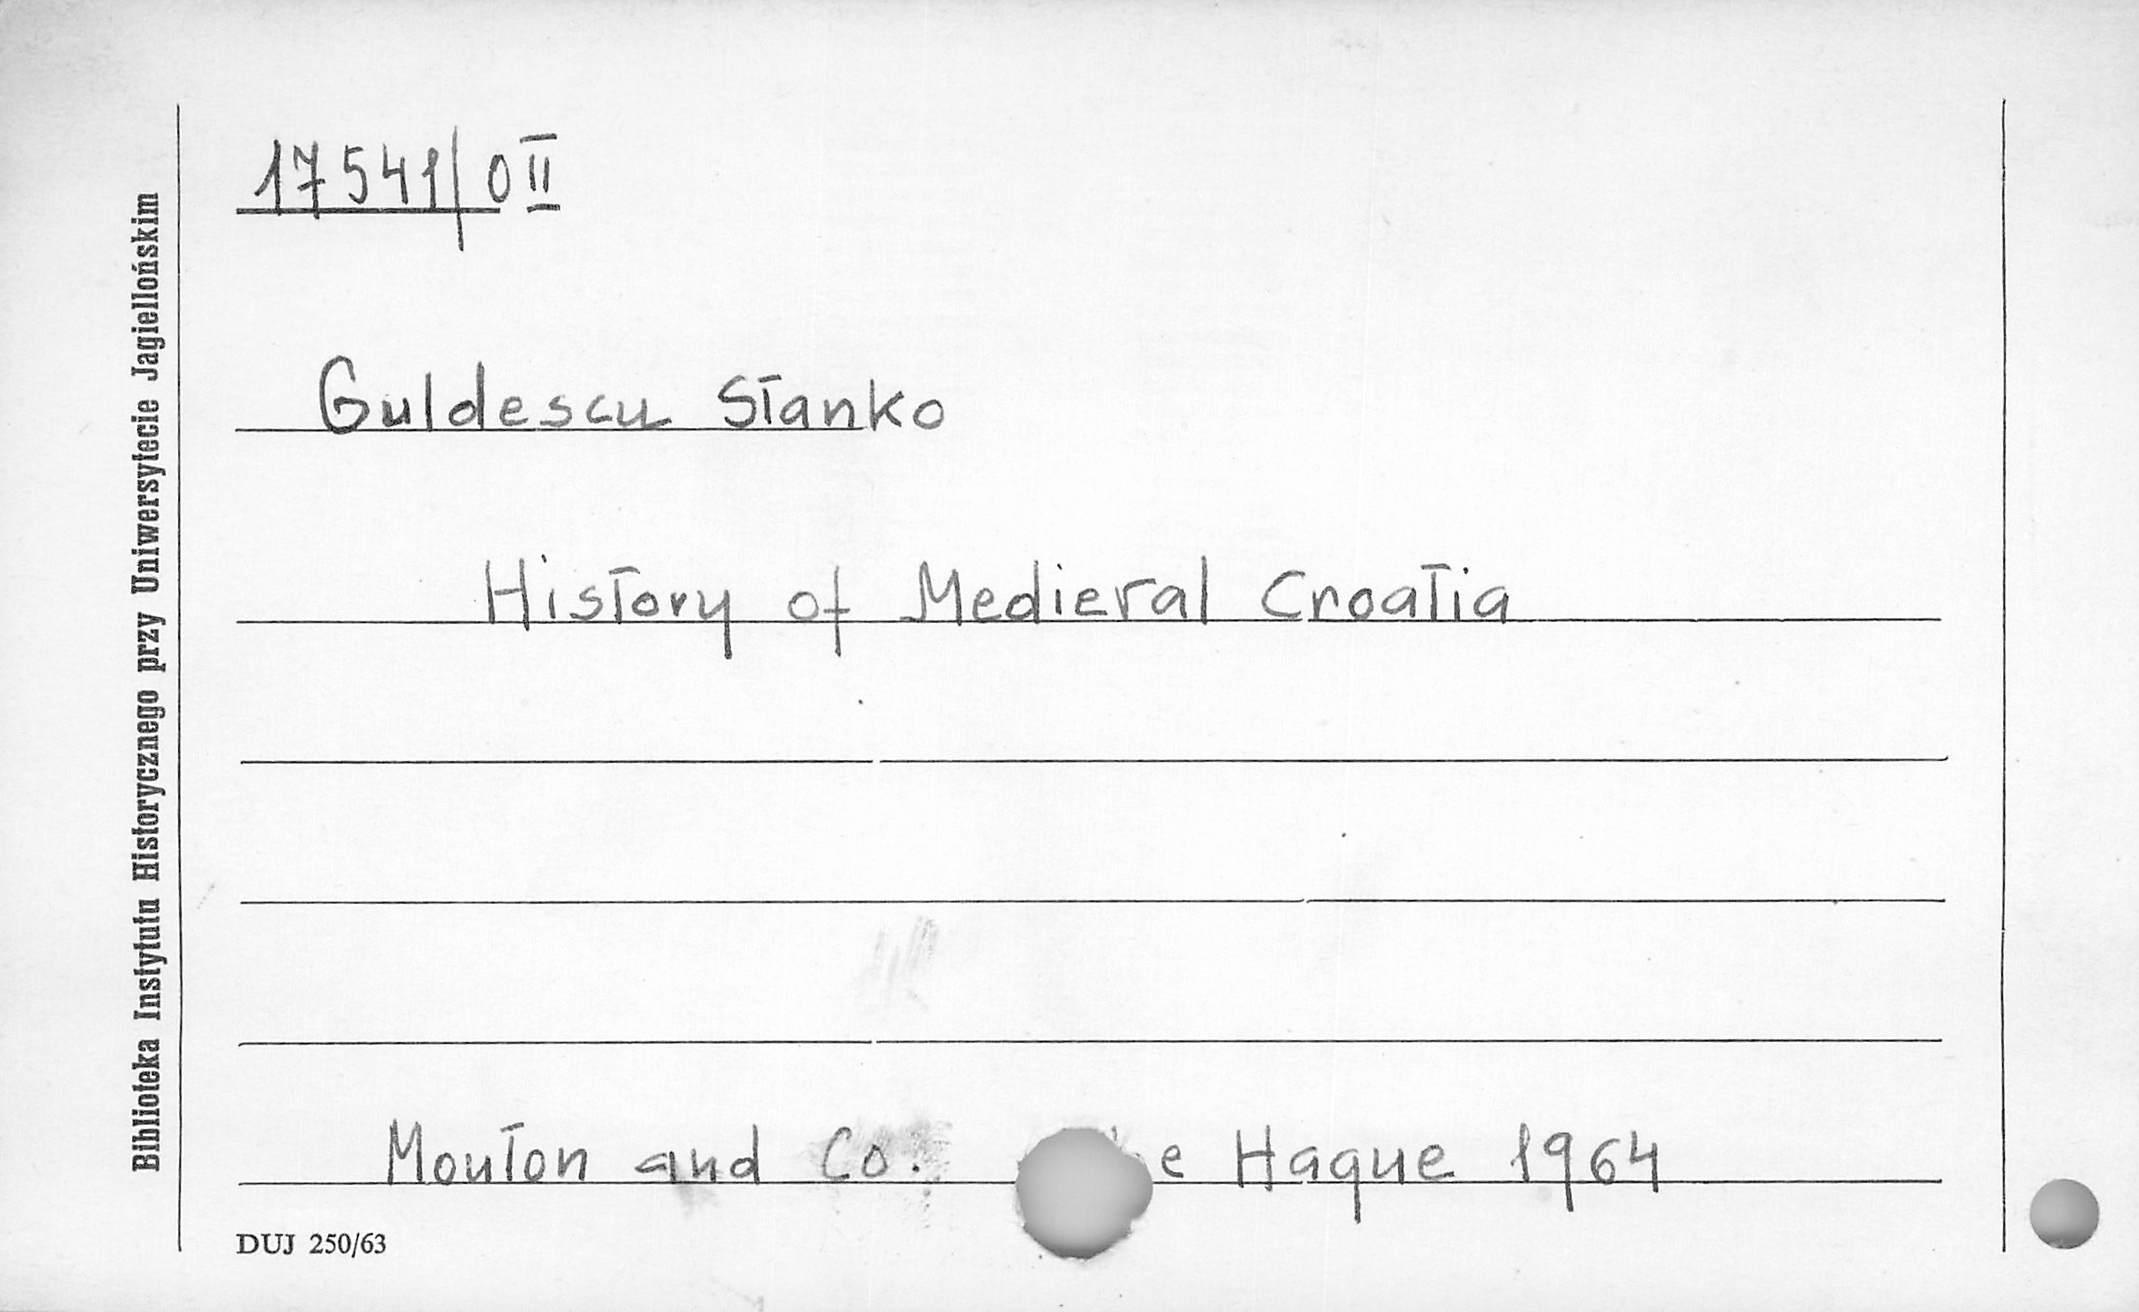 17541/0 II
Guldescu Stanko
History of Medieval Croatia
Mouton and Co. Hague 1964
DUJ 250/63
Biblioteka Instytutu Historycznego przy Uniwersytecie Jagiellońskim